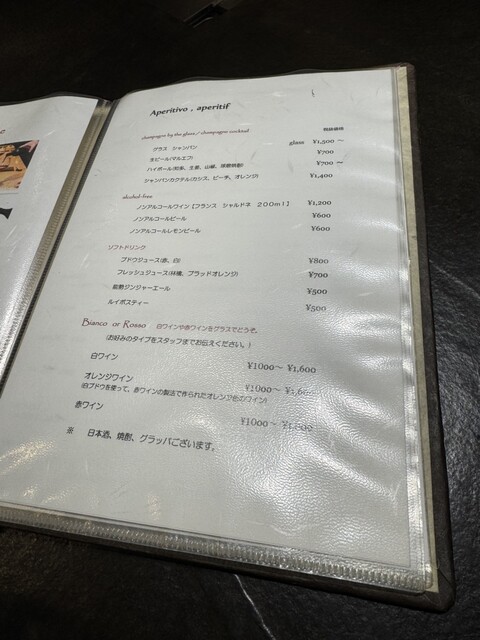 Aperitivo , aperitif
champagne by the glass / champagne cocktail 税抜価格
グラス シャンパン glass ¥1,500 ～
生ビール(マルエフ) ¥700
ハイボール(知多、土夏、山椒、球磨焼酎) ¥700 ～
シャンパンカクテル(カシス、ピーチ、オレンジ) ¥1,400
alcohol-free
ノンアルコールワイン [フランス シャルドネ 200ml] ¥1,200
ノンアルコールビール ¥600
ノンアルコールレモンビール ¥600
ソフトドリンク
ブドウジュース(赤、白) ¥800
フレッシュジュース(林檎、ブラッドオレンジ) ¥700
能勢ジンジャーエール ¥500
ルイボスティー ¥500
Bianco or Rosso 白ワインや赤ワインをグラスでどうぞ。
(お好みのタイプをスタッフまでお伝えください。)
白ワイン ¥1000～ ¥1,600
オレンジワイン ¥1000～ ¥1,600
(白ブドウを使って、赤ワインの製法で作られたオレンジ色のワイン)
赤ワイン ¥1000～
※ 日本酒、焼酎、グラッパございます。